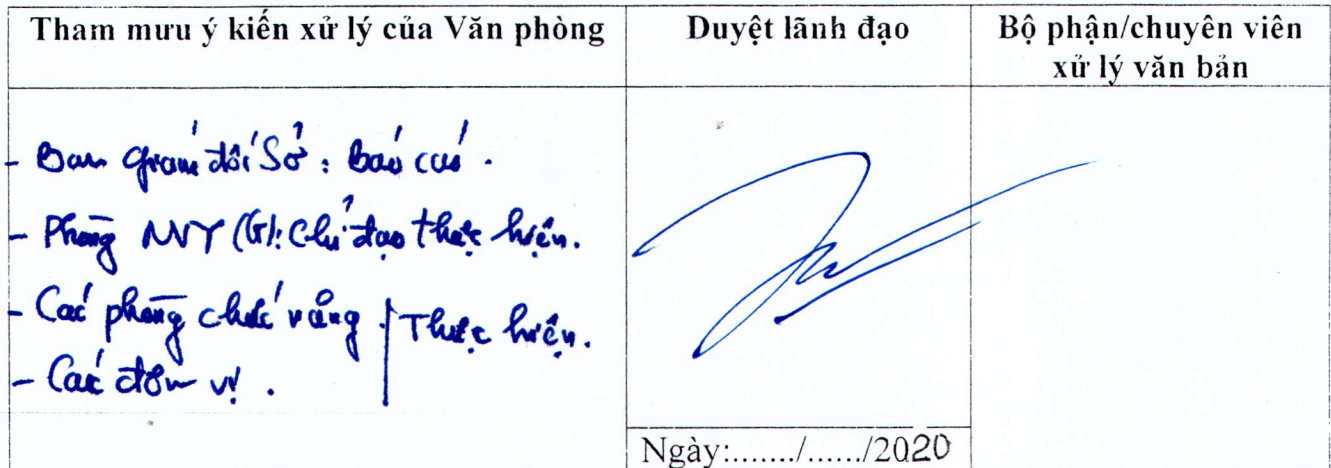 Tham mưu ý kiến xử lý của Văn phòng
Duyệt lãnh đạo
Bộ phận/chuyên viên
xử lý văn bản
- Ban Giám đốc Sở: Báo cáo.
- Phòng NVY (G): Chỉ đạo thực hiện.
- Các phòng chức năng
- Các đơn vị.
Thực hiện.
Ngày:......./....../2020